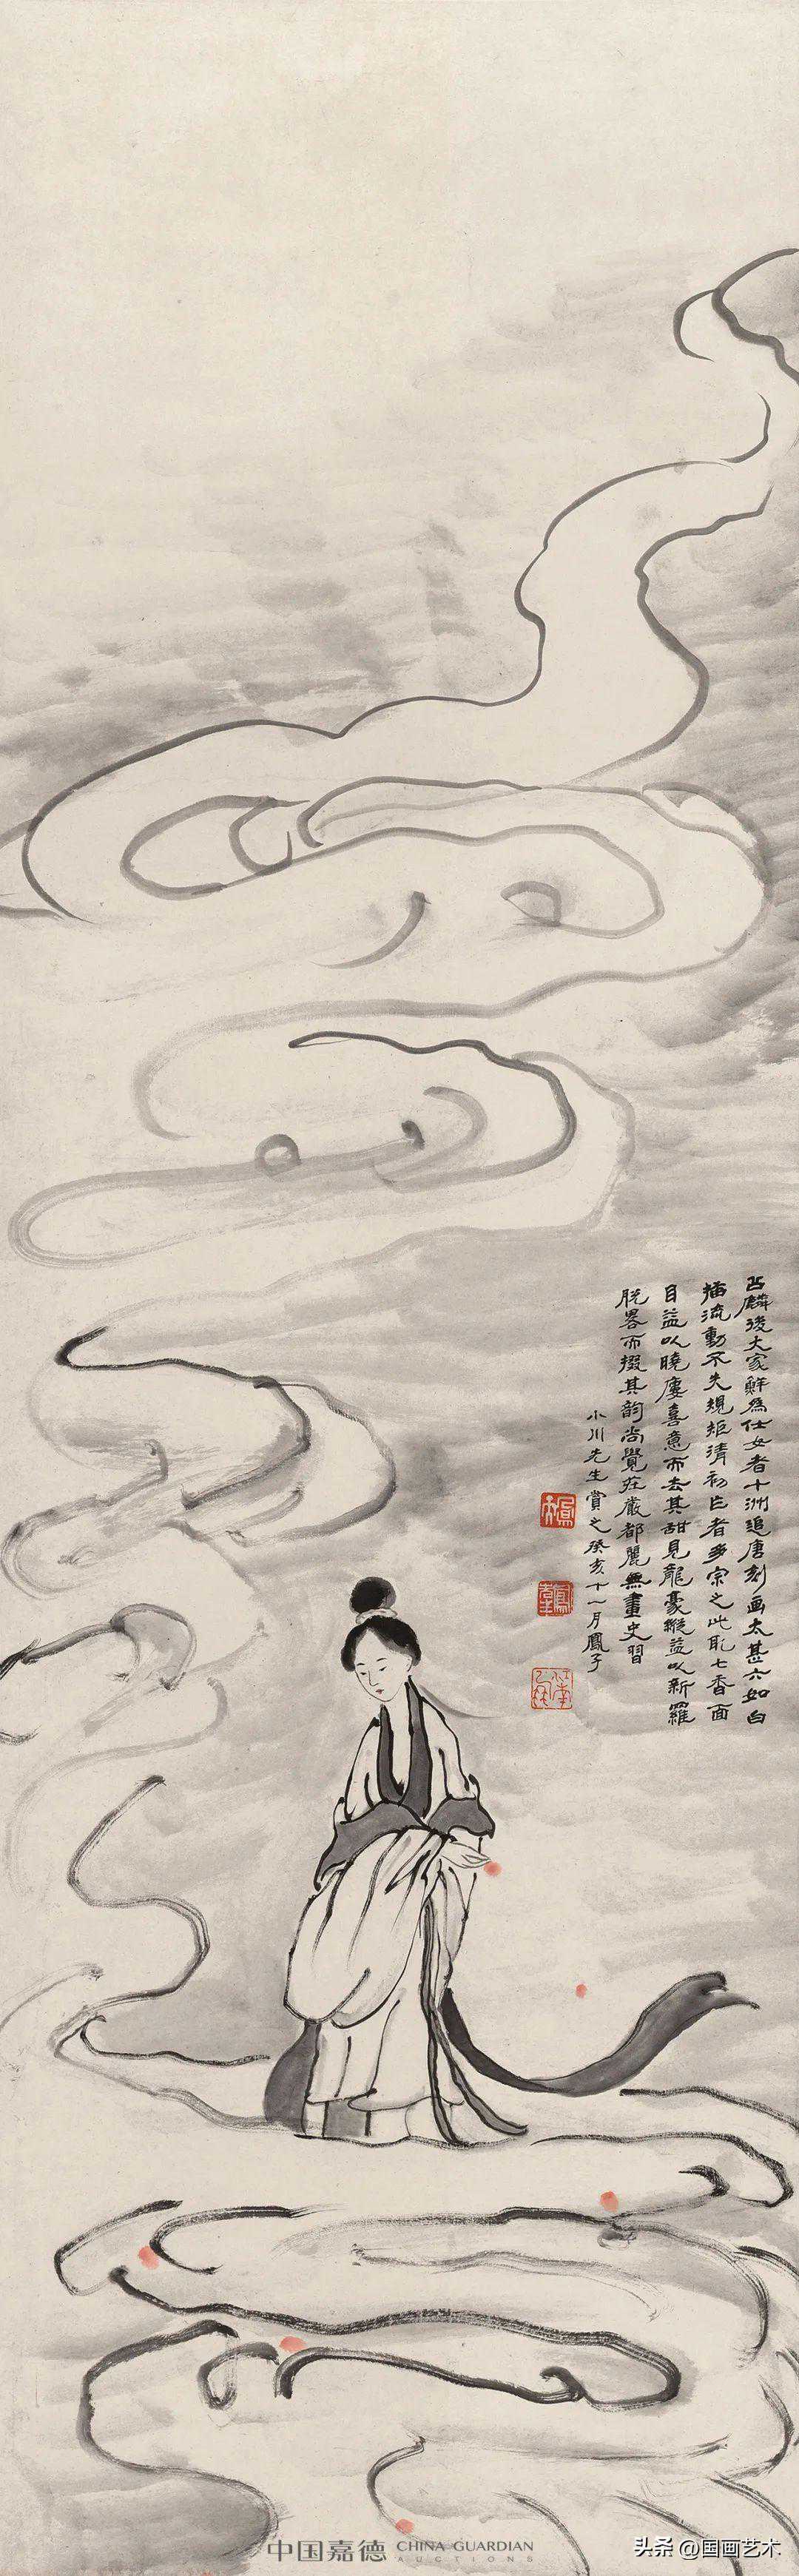 后麟後大家鮮爲仕女者十洲追唐刻画太甚六如白
描流動不失規矩清初巨者多宗之此取七香面
目益以曉慶喜意而去其甜見龍豪縱益以新羅
脫畧而掇其韵尚覺莊嚴都麗無畫史習
小川先生賞之癸亥十一月鳳子
中国嘉德 CHINA GUARDIAN
AUCTIONS
头条 @国画艺术